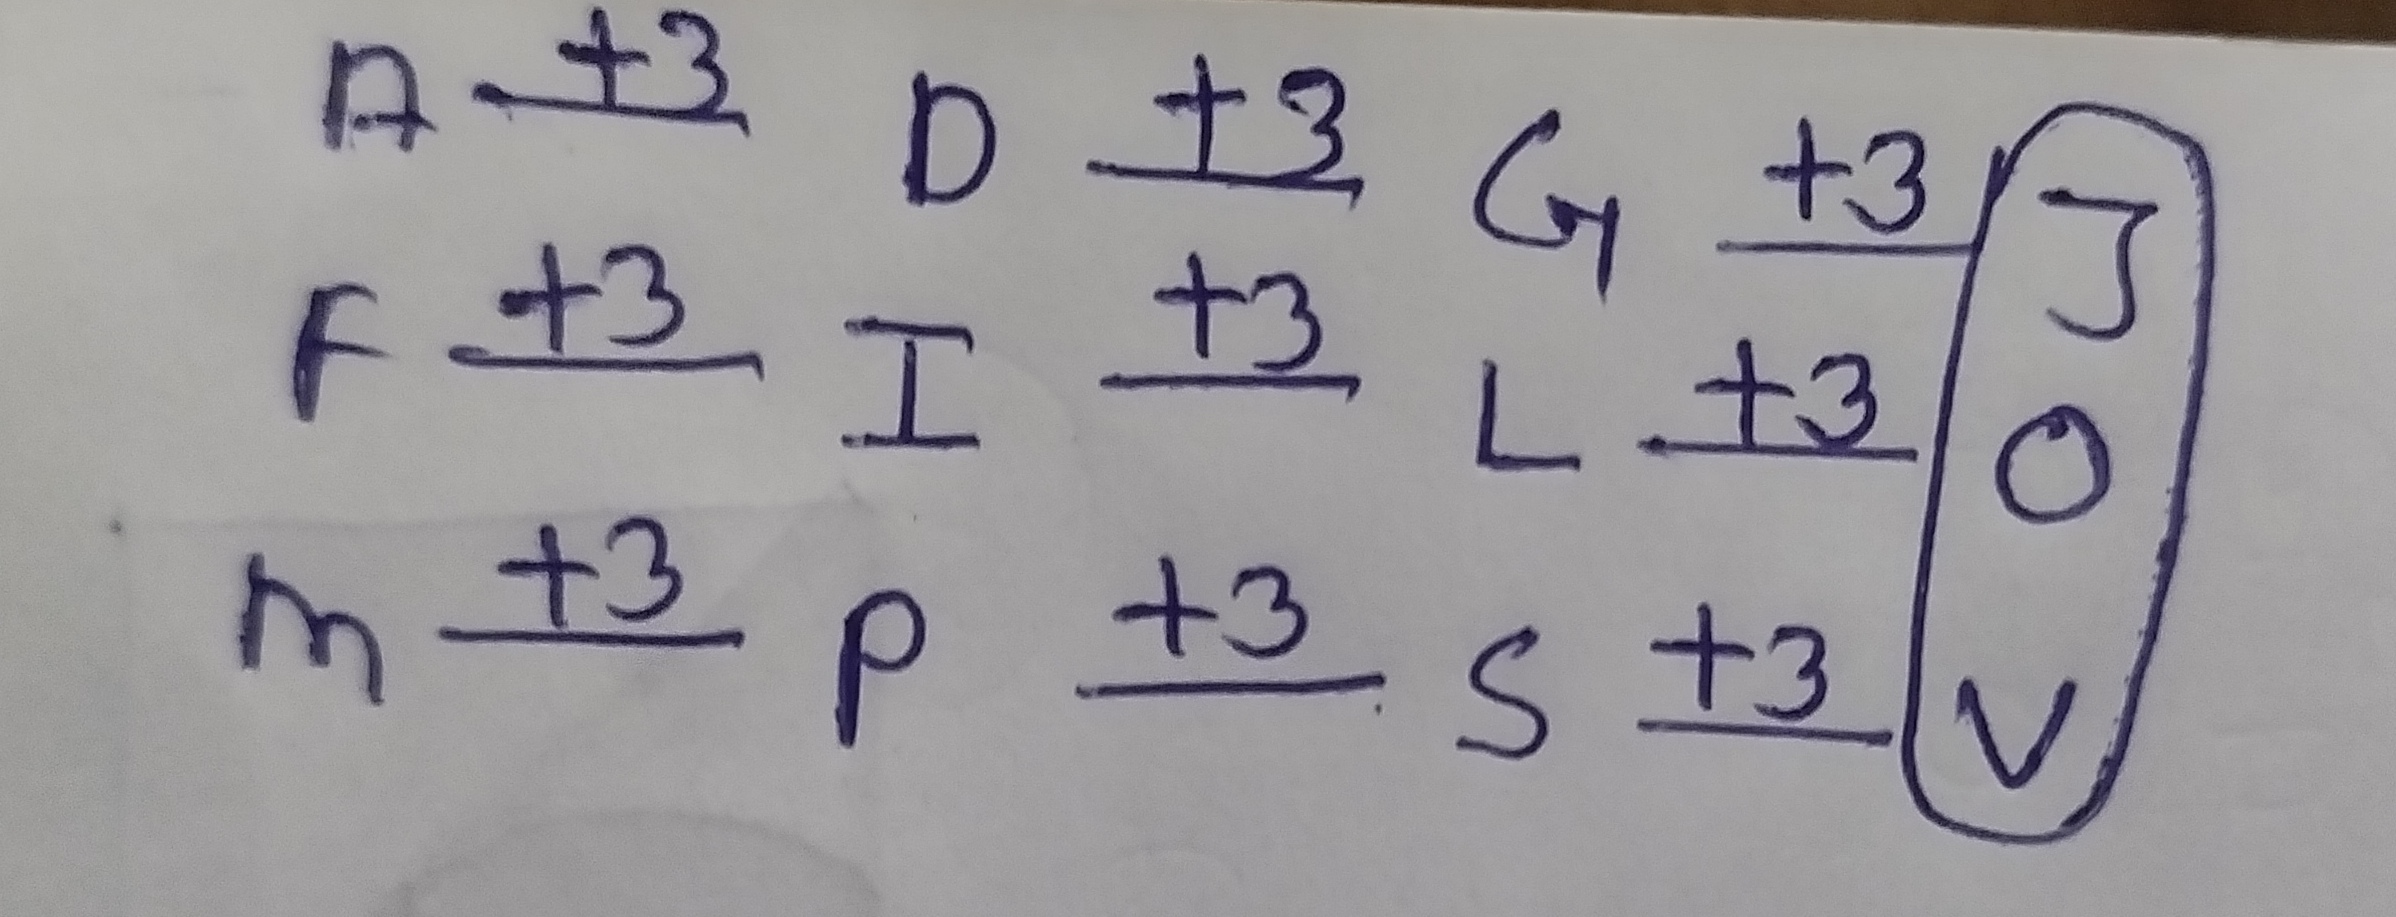 A +3 D +3 G +3 J
F +3 I +3 L +3 O
M +3 P +3 S +3 V